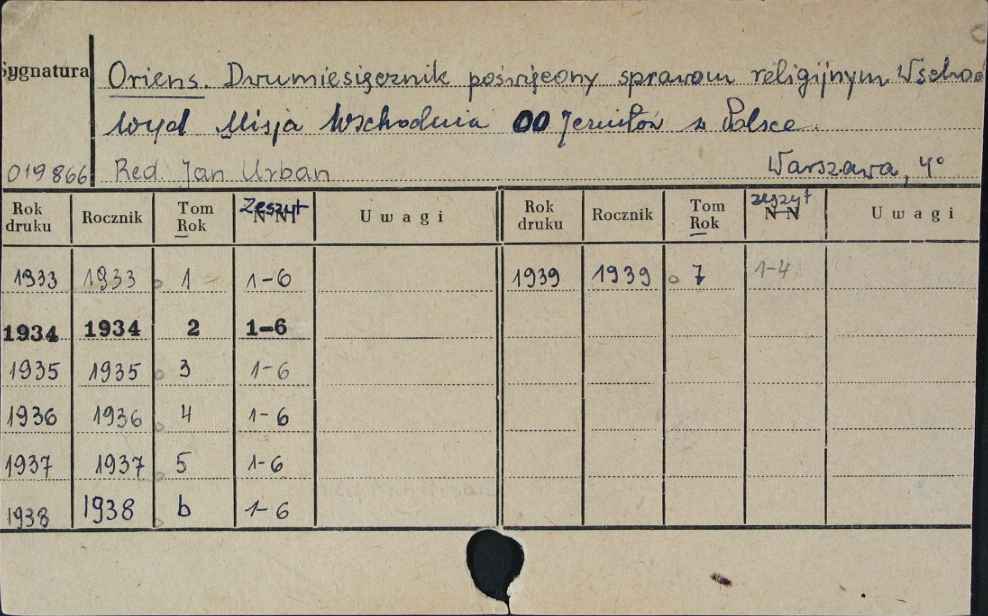 Sygnatura
Oriens. Dwumiesięcznik poświęcony sprawom religijnym Wschod
Wyd Misja Wschodnia OO Jezuitów w Polsce.
019866 Red. Jan Urban Warszawa, 4°
Rok druku Rocznik Tom Rok Zeszyt NN Uwagi Rok druku Rocznik Tom Rok zeszyt NN Uwagi
1933 1933 1 1-6 1939 1939 7 1-4
1934 1934 2 1-6
1935 1935 3 1-6
1936 1936 4 1-6
1937 1937 5 1-6
1938 1938 6 1-6